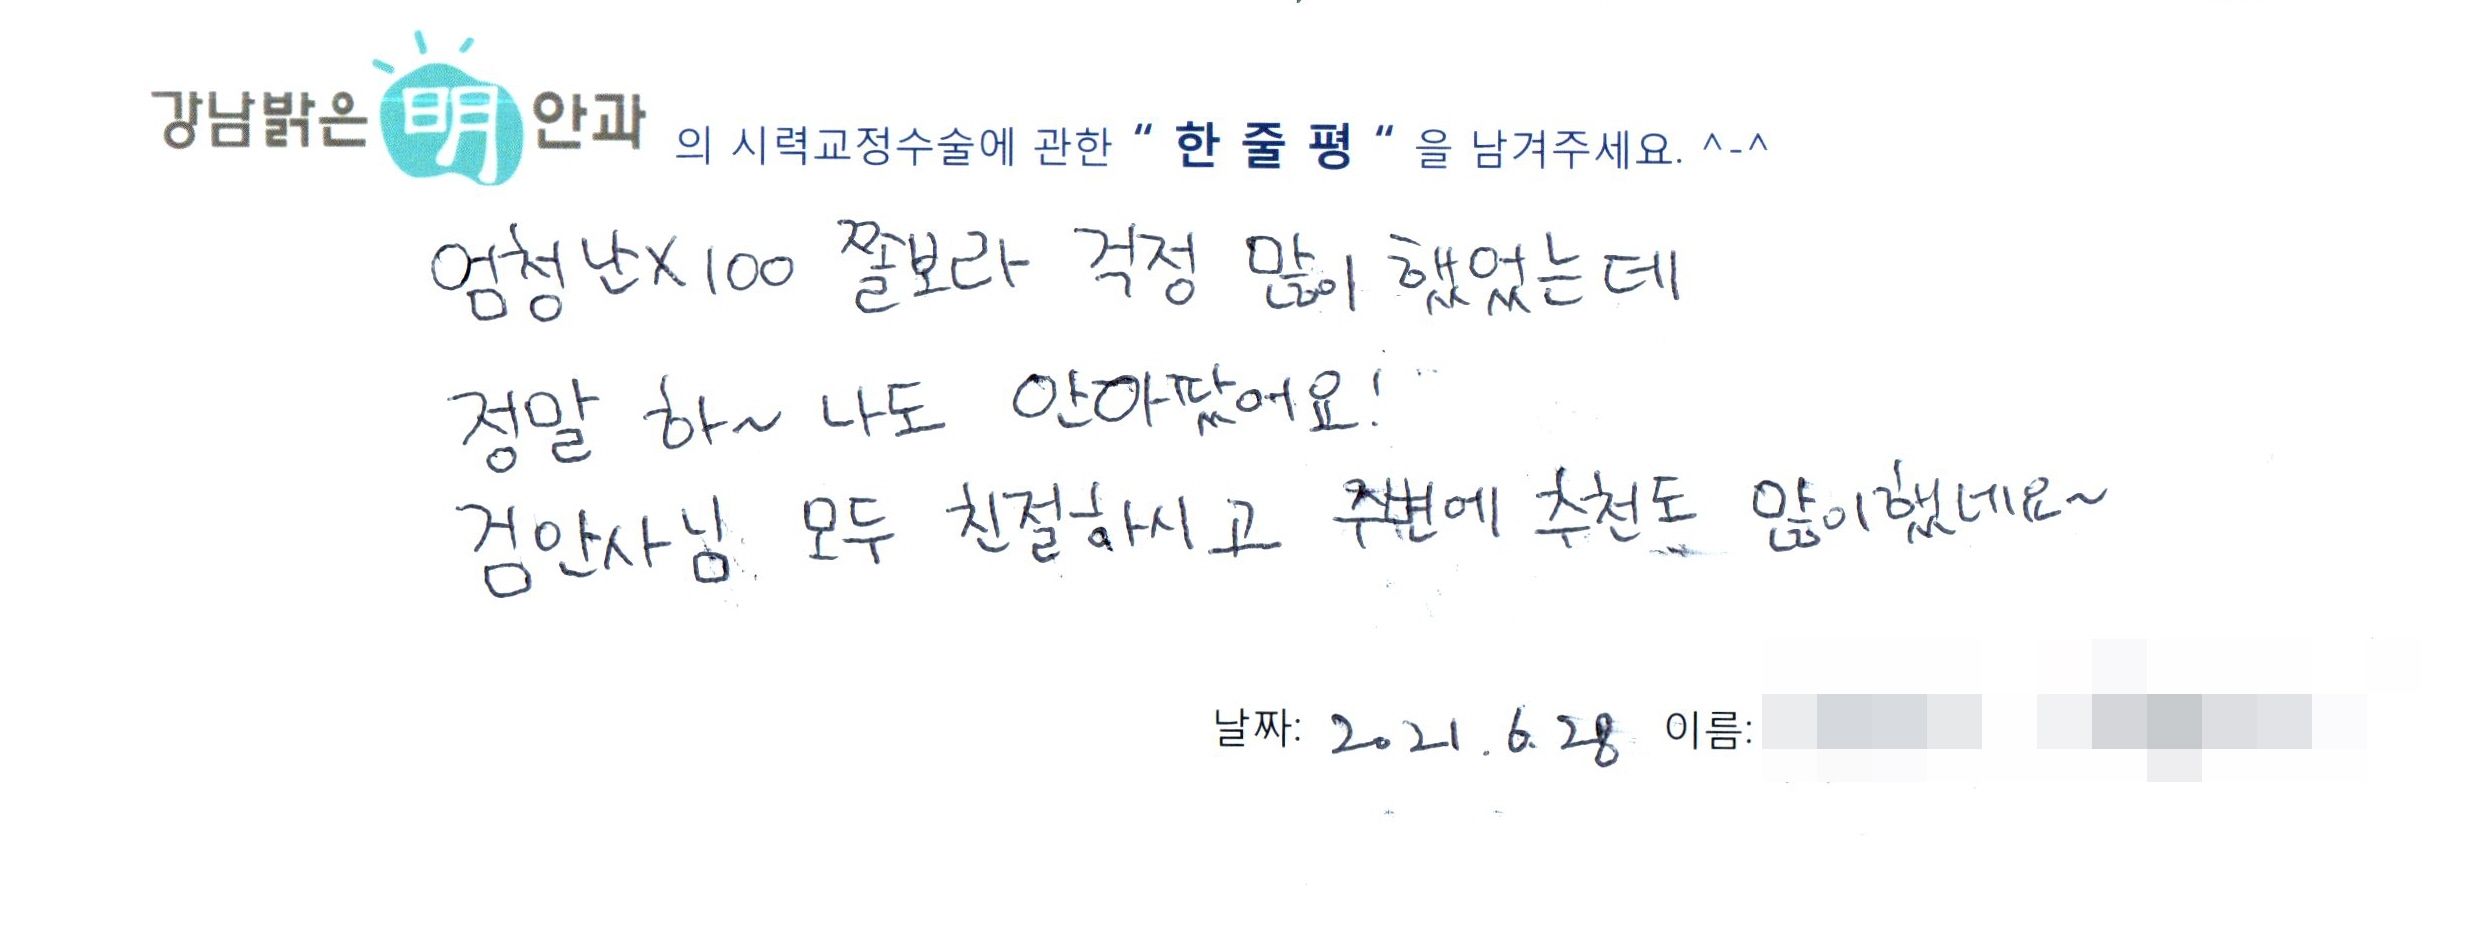 강남밝은 明 안과 의 시력교정수술에 관한 “ 한 줄 평 “ 을 남겨주세요. ^-^
엄청난X100 쫄보라 걱정 많이 했었는데
정말 하~ 나도 안아팠어요!
검안사님 모두 친절하시고 주변에 추천도 많이했네요~
날짜: 2021. 6. 28 이름: